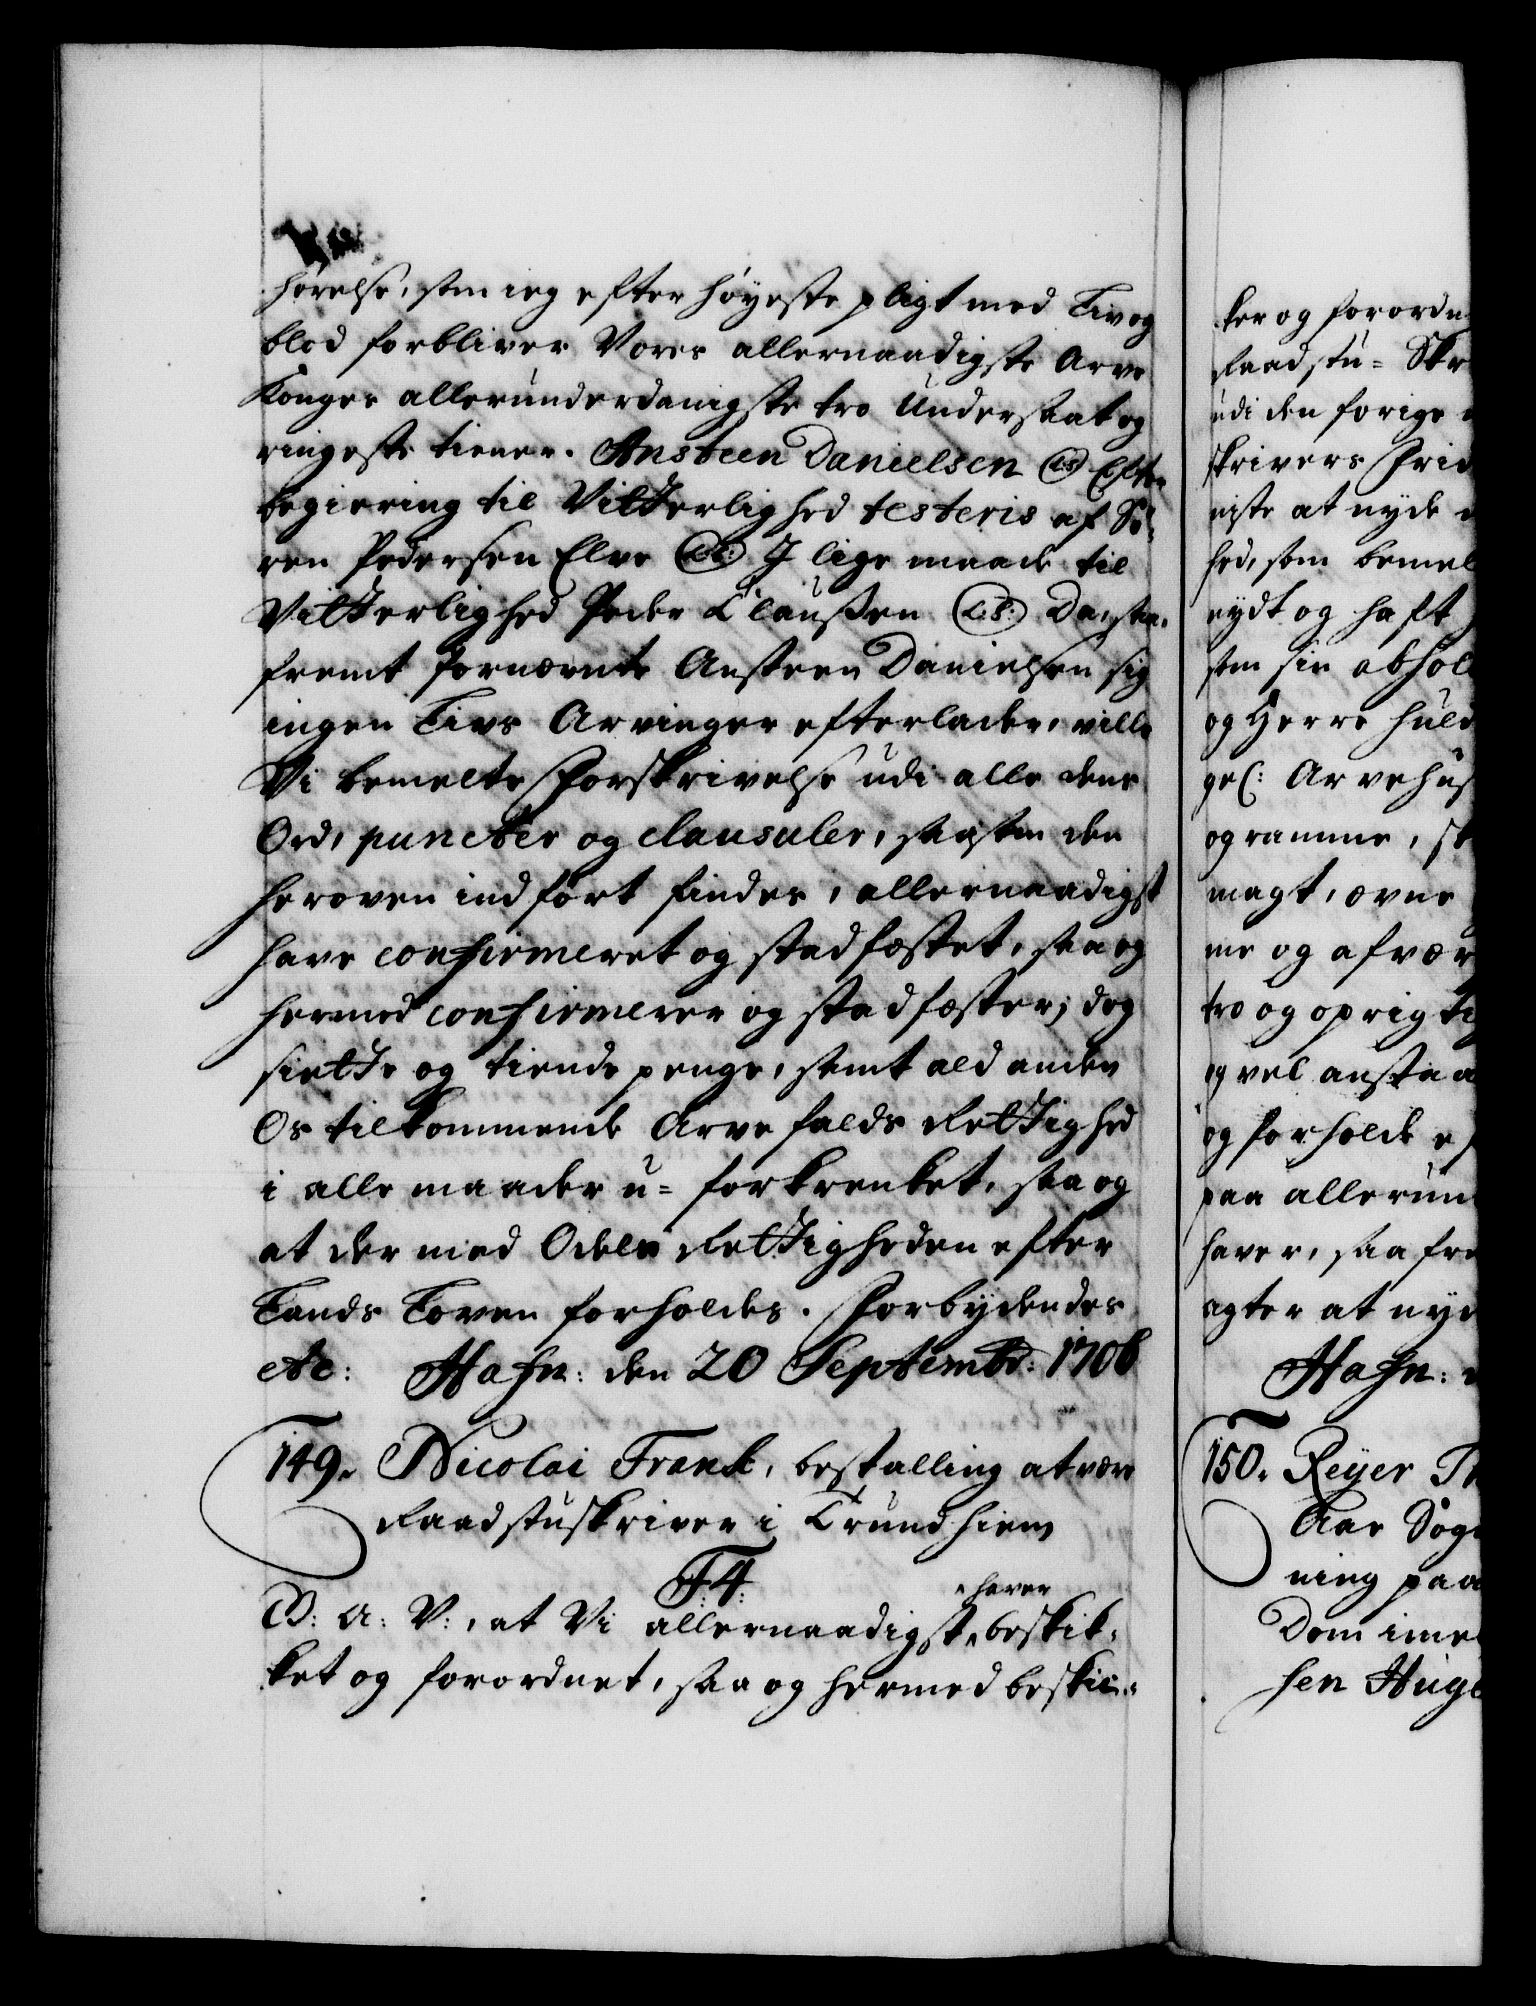 hørelse, som ieg efter høyeste pligt med Liv og
blod forbliver Vores allernaadigste Arve
Konges allerunderdanigste tro Undersaat og
ringeste tiener. Ansteen Danielsen (LS) Efter
begiering til Vitterlighed testeris af Sø-
ren Pedersen Elve (LS:) I lige maade til
Vitterlighed Peder Claussen (L:S:) Da, saa-
fremt fornævnte Ansteen Danielsen sig
ingen Livs Arvinger efterlader, ville
Vi bemelte Forskrivelse udi alle dens
Ord, puncter og clausuler, saasom den
heroven indført findes, allernaadigst
have confirmeret og stadfæstet, saa og
hermed confirmerer og stadfæster; dog
siette og tiende penge, samt ald anden
Os tilkommende Arvefalds Rettighed
i alle maader u-forkrenket, saa og
at der med Odels Rettigheden efter
Lands Loven forholdes. Forbydendes
etc: Hafn: den 20 Septembr: 1706
149. Nicolai Frank, bestalling at være
Raadstuskriver i Trundhiem
F:4:
G: A: V:, at Vi allernaadigst haver beskik-
ket og forordnet, saa og hermed beskic-
ker og forordn
Raadstu- Skr
udi den forige
skrivers Frid
niste at nyde
hed, som bemel
nydt og haft
som sin absol
og Herre huld
gel: Arvehus
og ramme, s
magt, ævne
me og afvær
tro og oprigti
og vel anstaa
og forholde e
paa allerun
haver, saa fre
agter at nyd
Hafn:
150. Reyer Th
Aas Sog
ning paa
Dom ime
sen Huge